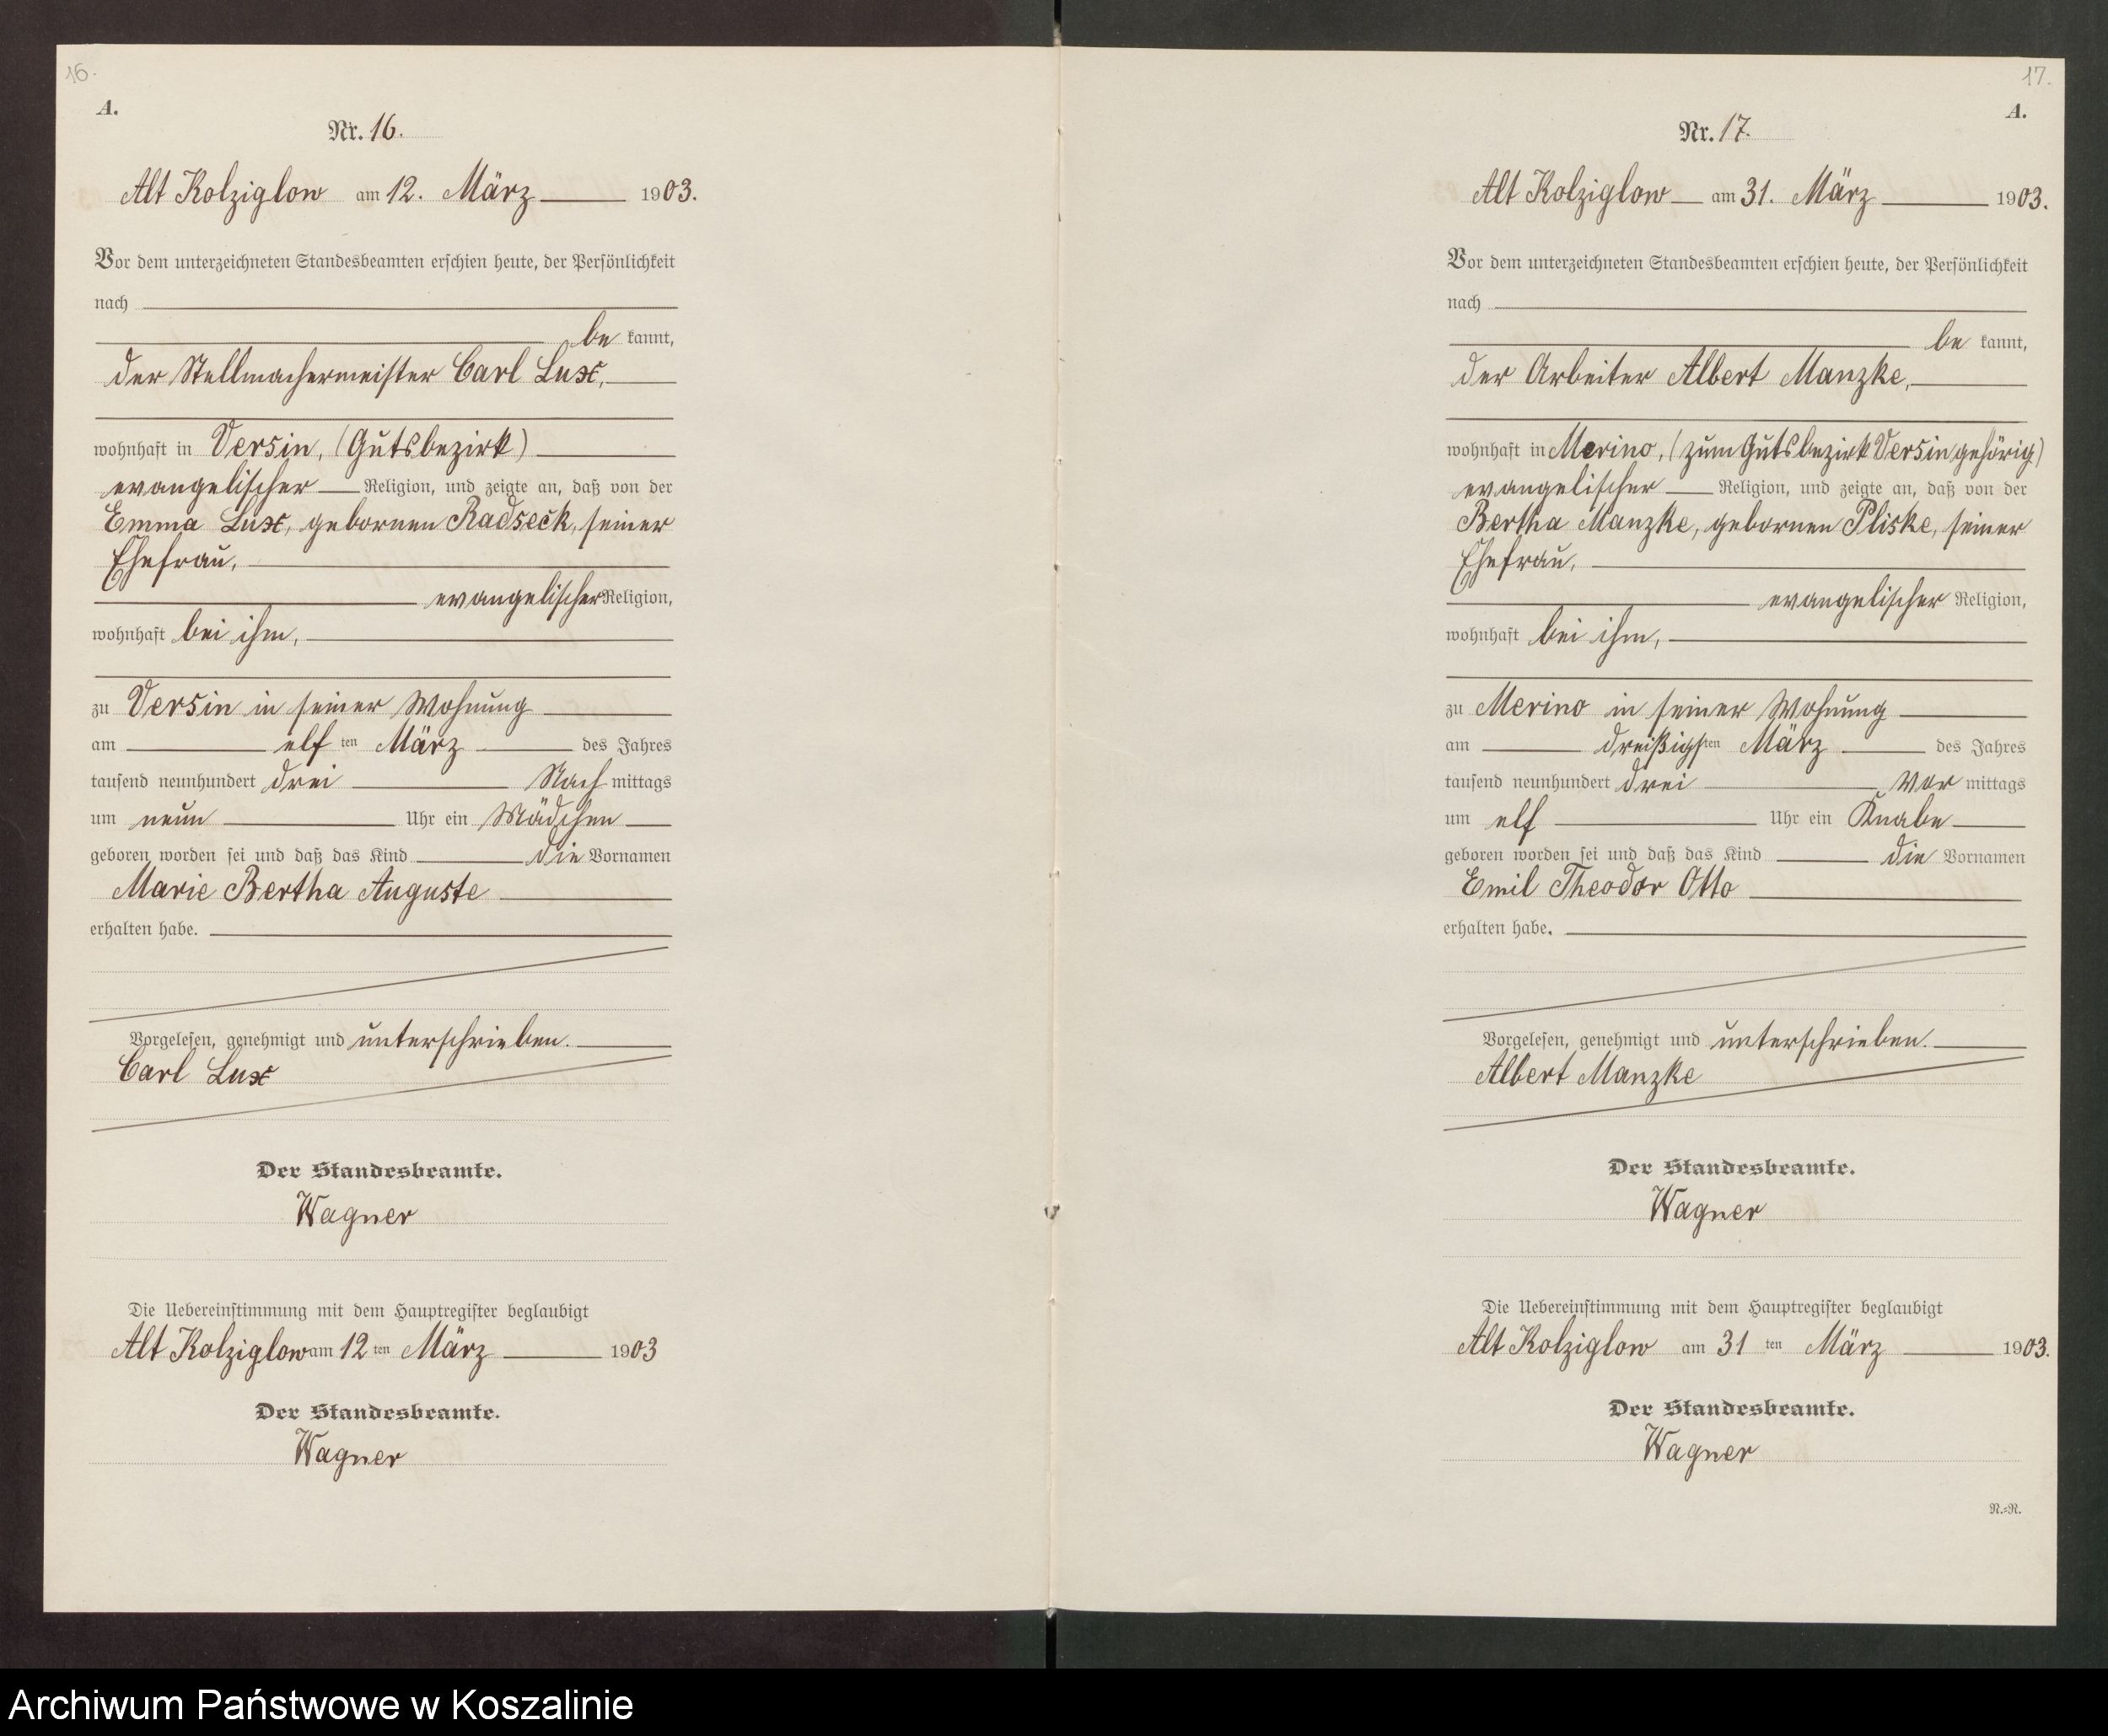 16.
A.
Nr. 16.
Alt Kolziglow am 12. März 1903.
Vor dem unterzeichneten Standesbeamten erschien heute, der Persönlichkeit
nach
be kannt,
der Stellmachermeister Carl Lux,
wohnhaft in Versin, (Gutsbezirk)
evangelischer Religion, und zeigte an, daß von der
Emma Lux, gebornen Radseck, seiner
Ehefrau,
evangelischer Religion,
wohnhaft bei ihm,
zu Versin in seiner Wohnung
am elf ten März des Jahres
tausend neunhundert drei Nach mittags
um neun Uhr ein Mädchen
geboren worden sei und daß das Kind die Vornamen
Marie Bertha Auguste
erhalten habe.
Vorgelesen, genehmigt und unterschrieben.
Carl Lux
Der Standesbeamte.
Wagner
Die Uebereinstimmung mit dem Hauptregister beglaubigt
Alt Kolziglow am 12 ten März 1903
Der Standesbeamte.
Wagner
17.
A.
Nr. 17.
Alt Kolziglow am 31. März 1903.
Vor dem unterzeichneten Standesbeamten erschien heute, der Persönlichkeit
nach
be kannt,
der Arbeiter Albert Manzke,
wohnhaft in Merino, (zum Gutsbezirk Versin gehörig)
evangelischer Religion, und zeigte an, daß von der
Bertha Manzke, gebornen Pliske, seiner
Ehefrau,
evangelischer Religion,
wohnhaft bei ihm,
zu Merino in seiner Wohnung
am dreißigs ten März des Jahres
tausend neunhundert drei Vor mittags
um elf Uhr ein Knabe
geboren worden sei und daß das Kind die Vornamen
Emil Theodor Otto
erhalten habe.
Vorgelesen, genehmigt und unterschrieben.
Albert Manzke
Der Standesbeamte.
Wagner
Die Uebereinstimmung mit dem Hauptregister beglaubigt
Alt Kolziglow am 31 ten März 1903.
Der Standesbeamte.
Wagner
N.=R.
Archiwum Państwowe w Koszalinie